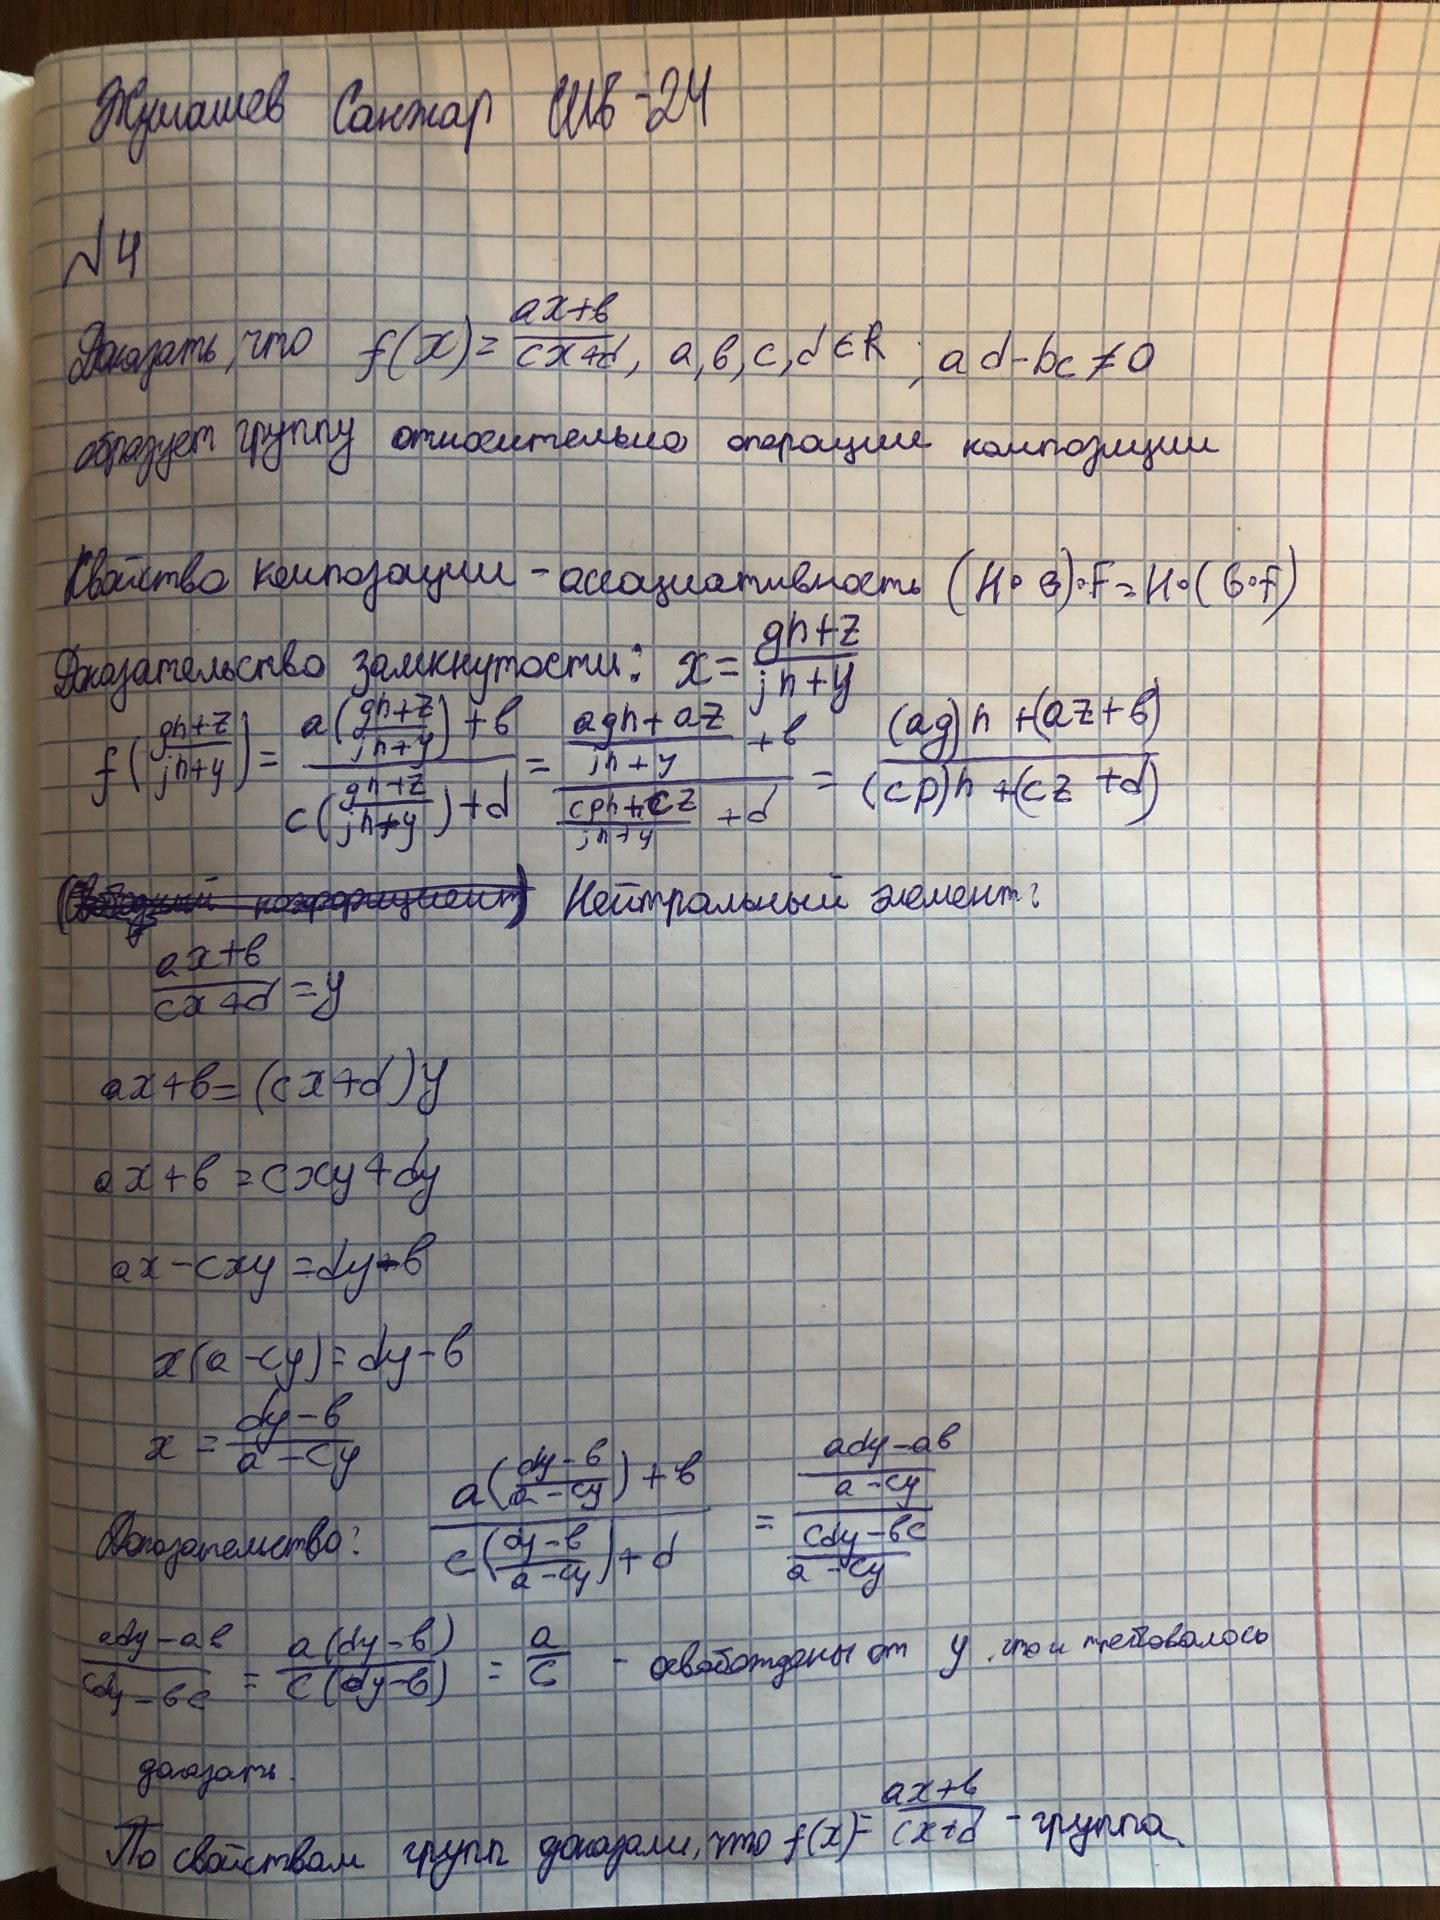 Жумашев Санжар ШБ-24
№4
Доказать, что f(x) = (ax+b)/(cx+d), a, b, c, d ∈ R ; ad-bc≠0
образует группу относительно операции композиции
Свойство композации - ассоциативность (H∘G)∘F=H∘(G∘F)
Доказательство замкнутости: x = (gn+z)/(jn+y)
f((gn+z)/(jn+y)) = (a((gn+z)/(jn+y))+b)/(c((gn+z)/(jn+y))+d) = ((agn+az)/(jn+y) + b)/((cpn+cz)/(jn+y) + d) = ((ag)n+(az+b))/((cp)n+(cz+d))
Нейтральный элемент:
(ax+b)/(cx+d) = y
ax+b=(cx+d)y
ax+b=cxy+dy
ax-cxy=dy-b
x(a-cy)=dy-b
x = (dy-b)/(a-cy)
Доказательство: (a((dy-b)/(a-cy))+b)/(c((dy-b)/(a-cy))+d) = ((ady-ab)/(a-cy))/((cdy-bc)/(a-cy))
(ady-ab)/(cdy-bc) = (a(dy-b))/(c(dy-b)) = a/c - освобождены от y, что и требовалось
доказать.
По свойствам групп доказали, что f(x)= (ax+b)/(cx+d) - группа.